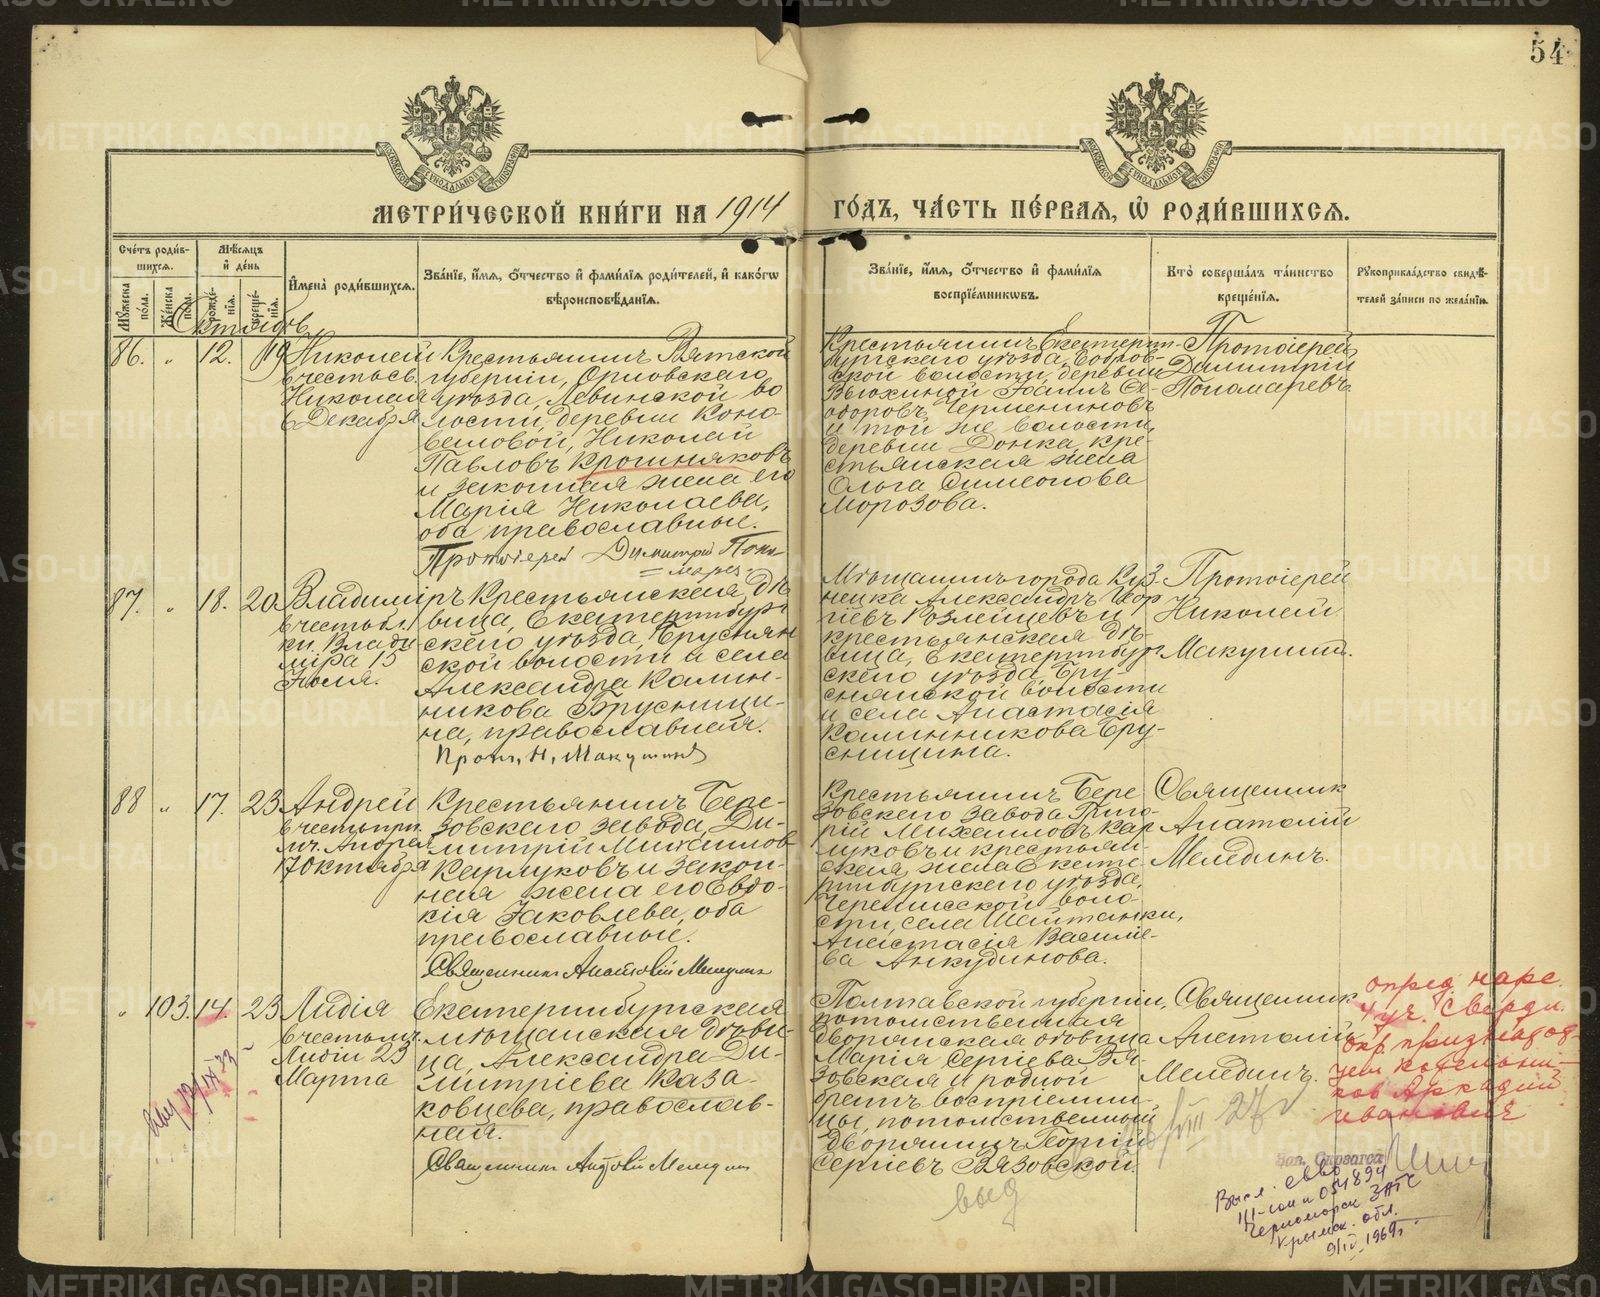 54
МЕТРИ́ЧЕСКОЙ КНИ́ГИ НА 1914
ГО́ДЪ, ЧА́СТЬ ПЕ́РВАѦ, Ѡ РОДИ́ВШИХСѦ.
Сче́тъ роди́в-
шихсѧ.
Мꙋжеска по́ла.
Же́нска по́ла.
Мѣ́сѧцъ
и҆ де́нь
рожде́-
нїѧ.
креще́-
нїѧ.
И҆мена̀ роди́вшихсѧ.
Зва́нїе, и҆́мѧ, о҆́тчество и҆ фами́лїѧ роди́телей, и҆ како́гѡ
вѣроисповѣ́данїѧ.
Зва́нїе, и҆́мѧ, о҆́тчество и҆ фами́лїѧ
воспрїе́мникѡвъ.
Кто̀ соверша́лъ та́инство
креще́нїѧ.
Рꙋкоприкла́дство свидѣ́-
телей за́писи по жела́нїю.
Октябрь
86. „ 12. 19
Николай
в честь св.
Николая
6 Декабря
Крестьянинъ Вятской
губерніи, Орловскаго
уѣзда, Левинской во
лости, деревни Коно-
валовой, Николай
Павловъ Крошняковъ
и законная жена его
Марія Николаева,
оба православные.
Протоіерей Димитрій Поно-
марев
Крестьянинъ Екатерин-
бургскаго уѣзда, Бобров-
ской волости, деревни
Вьюхиной Фаилъ Ѳе-
одоровъ Чермениновъ
и той же волости,
деревни Донка, кре-
стьянская жена
Ольга Симеонова
Морозова.
Протоіерей
Димитрій
Пономаревъ
87. „ 18. 20
Владиміръ
в честь бл.
кн. Влади
міра 15
Іюля.
Крестьянская дѣ
вица, Екатеринбург
скаго уѣзда, Бруснян
ской волости и села
Александра Калин-
никова Брусници-
на, православная.
Прот. Н. Макушинъ
Мѣщанинъ города Куз-
нецка Александръ Геор
гіевъ Розлейцевъ и
крестьянская дѣ-
вица, Екатеринбург
скаго уѣзда, Бру-
снянской волости
и села Анастасія
Калинникова Бру-
сницина.
Протоіерей
Николай
Макушинъ.
88 „ 17. 23
Андрей
в честь прп.
мч. Андрея
17 Октября
Крестьянинъ Бере-
зовскаго завода, Ди-
митрій Михаиловъ
Карлуковъ и закон-
ная жена его Евдо-
кія Іаковлева, оба
православные.
Священникъ Анатолій Меледин
Крестьянинъ Бере
зовскаго завода Григо-
рій Михаиловъ Кар
луковъ и крестьян-
ская жена Екате-
ринбургскаго уѣзда,
Черемисской воло-
сти, села Шайтанки,
Анастасія Василіе-
ва Анкудинова.
Священник
Анатолій
Мелединъ.
„ 103. 14. 23
Лидія
в честь мц.
Лидіи 23
Марта
Екатеринбургская
мѣщанская дѣви-
ца, Александра Ди-
митріева Каза-
ковцева, православ-
ная.
Священникъ Анатолій Меледин
Полтавской губерніи,
потомственная
дворянская дѣвица
Марія Сергіева Вя-
зовская и родной
братъ воспріемни-
цы, потомственный
дворянинъ Георгій
Сергіевъ Вязовской.
Священник
Анатолій
Мелединъ.
опред. нарс.
4 уч. Свердл.
окр. признан от-
цем Котельни-
ков Аркадий
Иванович
VIII 27
выд
Высл. свво
III-ЮИ № 054894
Черноморск ЗАГС
Крымск. обл.
9/IV 1969г.
METRIKI.GASO-URAL.RU